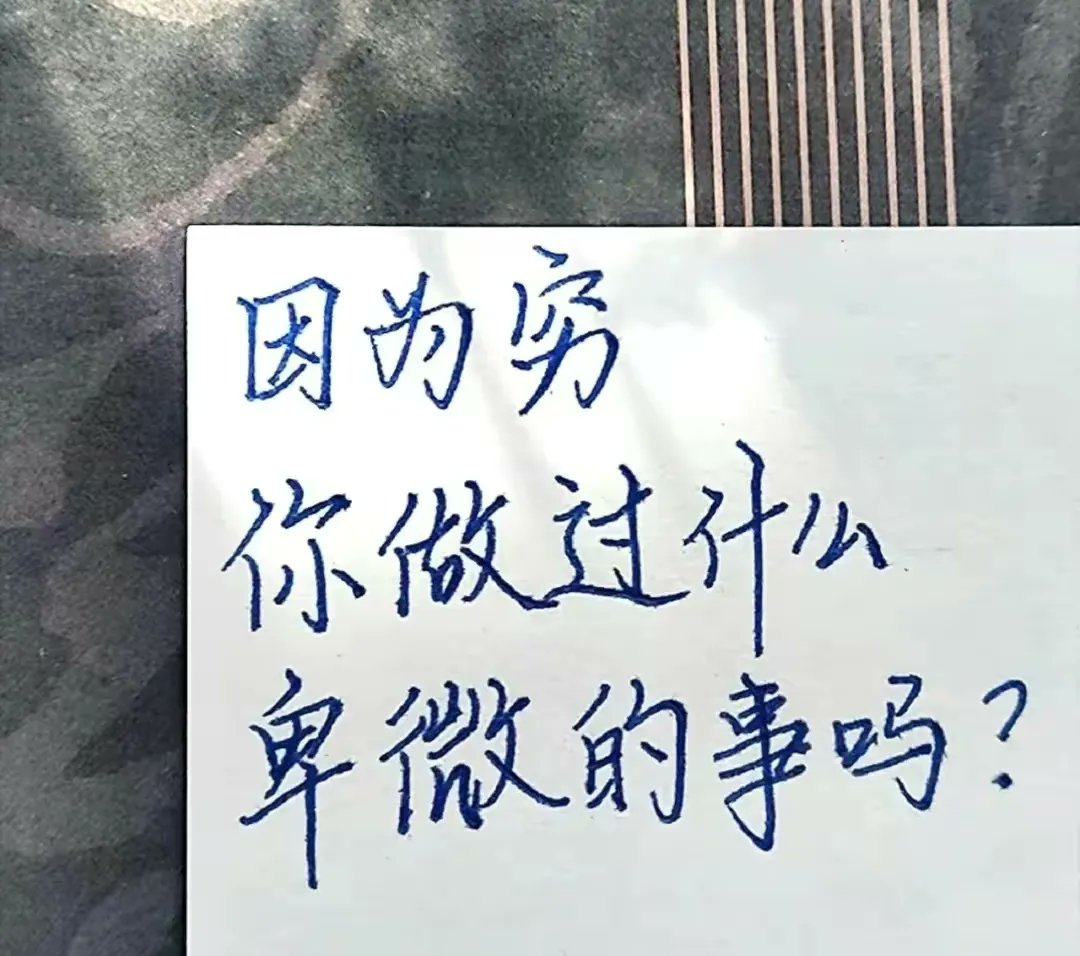 因为穷
你做过什么
卑微的事吗？